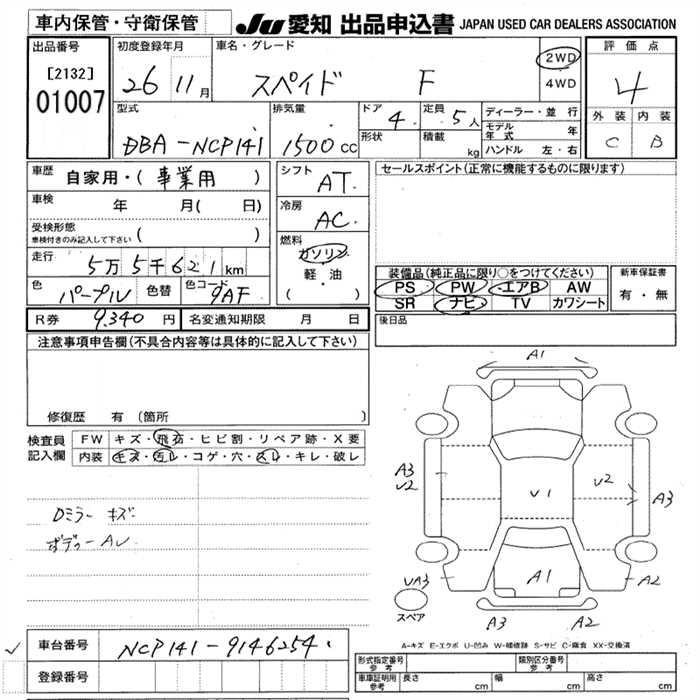 車内保管・守衛保管
JU 愛知 出品申込書 JAPAN USED CAR DEALERS ASSOCIATION
出品番号
[2132]
01007
初度登録年月
26 11月
車名・グレード
スペイド F
2WD
4WD
評価点
4
外装 内装
C B
型式
DBA-NCP141
排気量
1500cc
ドア 4
形状
定員 5人
積載 kg
ディーラー・並行
モデル年式 年
ハンドル 左・右
車歴 自家用・(事業用)
車検 年 月( 日)
受検形態
車検付きのみ記入して下さい ( )
走行 5万5千621km
色 パープル 色替 色コード 9AF
シフト AT
冷房 AC
燃料
ガソリン
軽・油
( )
セールスポイント(正常に機能するものに限ります)
装備品(純正品に限り○をつけてください)
PS PW エアB AW
SR ナビ TV カワシート
新車保証書
有・無
後日品
R券 9,340円 名変通知期限 月 日
注意事項申告欄(不具合内容等は具体的に記入して下さい)
修復歴 有(箇所 )
検査員記入欄
FW キズ・飛石・ヒビ割・リペア跡・X要
内装 キズ・汚レ・コゲ・穴・スレ・キレ・破レ
Dミラー キズ
ボディー AU
A1
A3
V2
V1
V2
A3
UA3
A1
A2
スペア
A3
A2
A-キズ E-エクボ U-凹み W-補修跡 S-サビ C-腐食 XX-交換済
車台番号 NCP141-9146254
登録番号
形式指定番号
参考
類別区分番号
参考
車庫証明用
参考
長さ cm 幅 cm 高さ cm